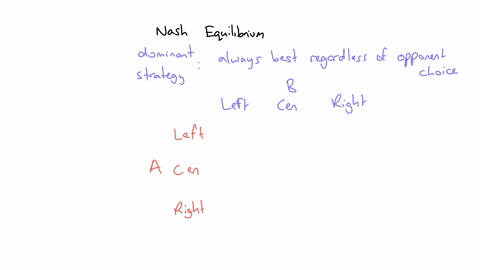 Nash Equilibrium
dominant strategy : always best regardless of opponent choice
B
Left Cen Right
Left
A Cen
Right